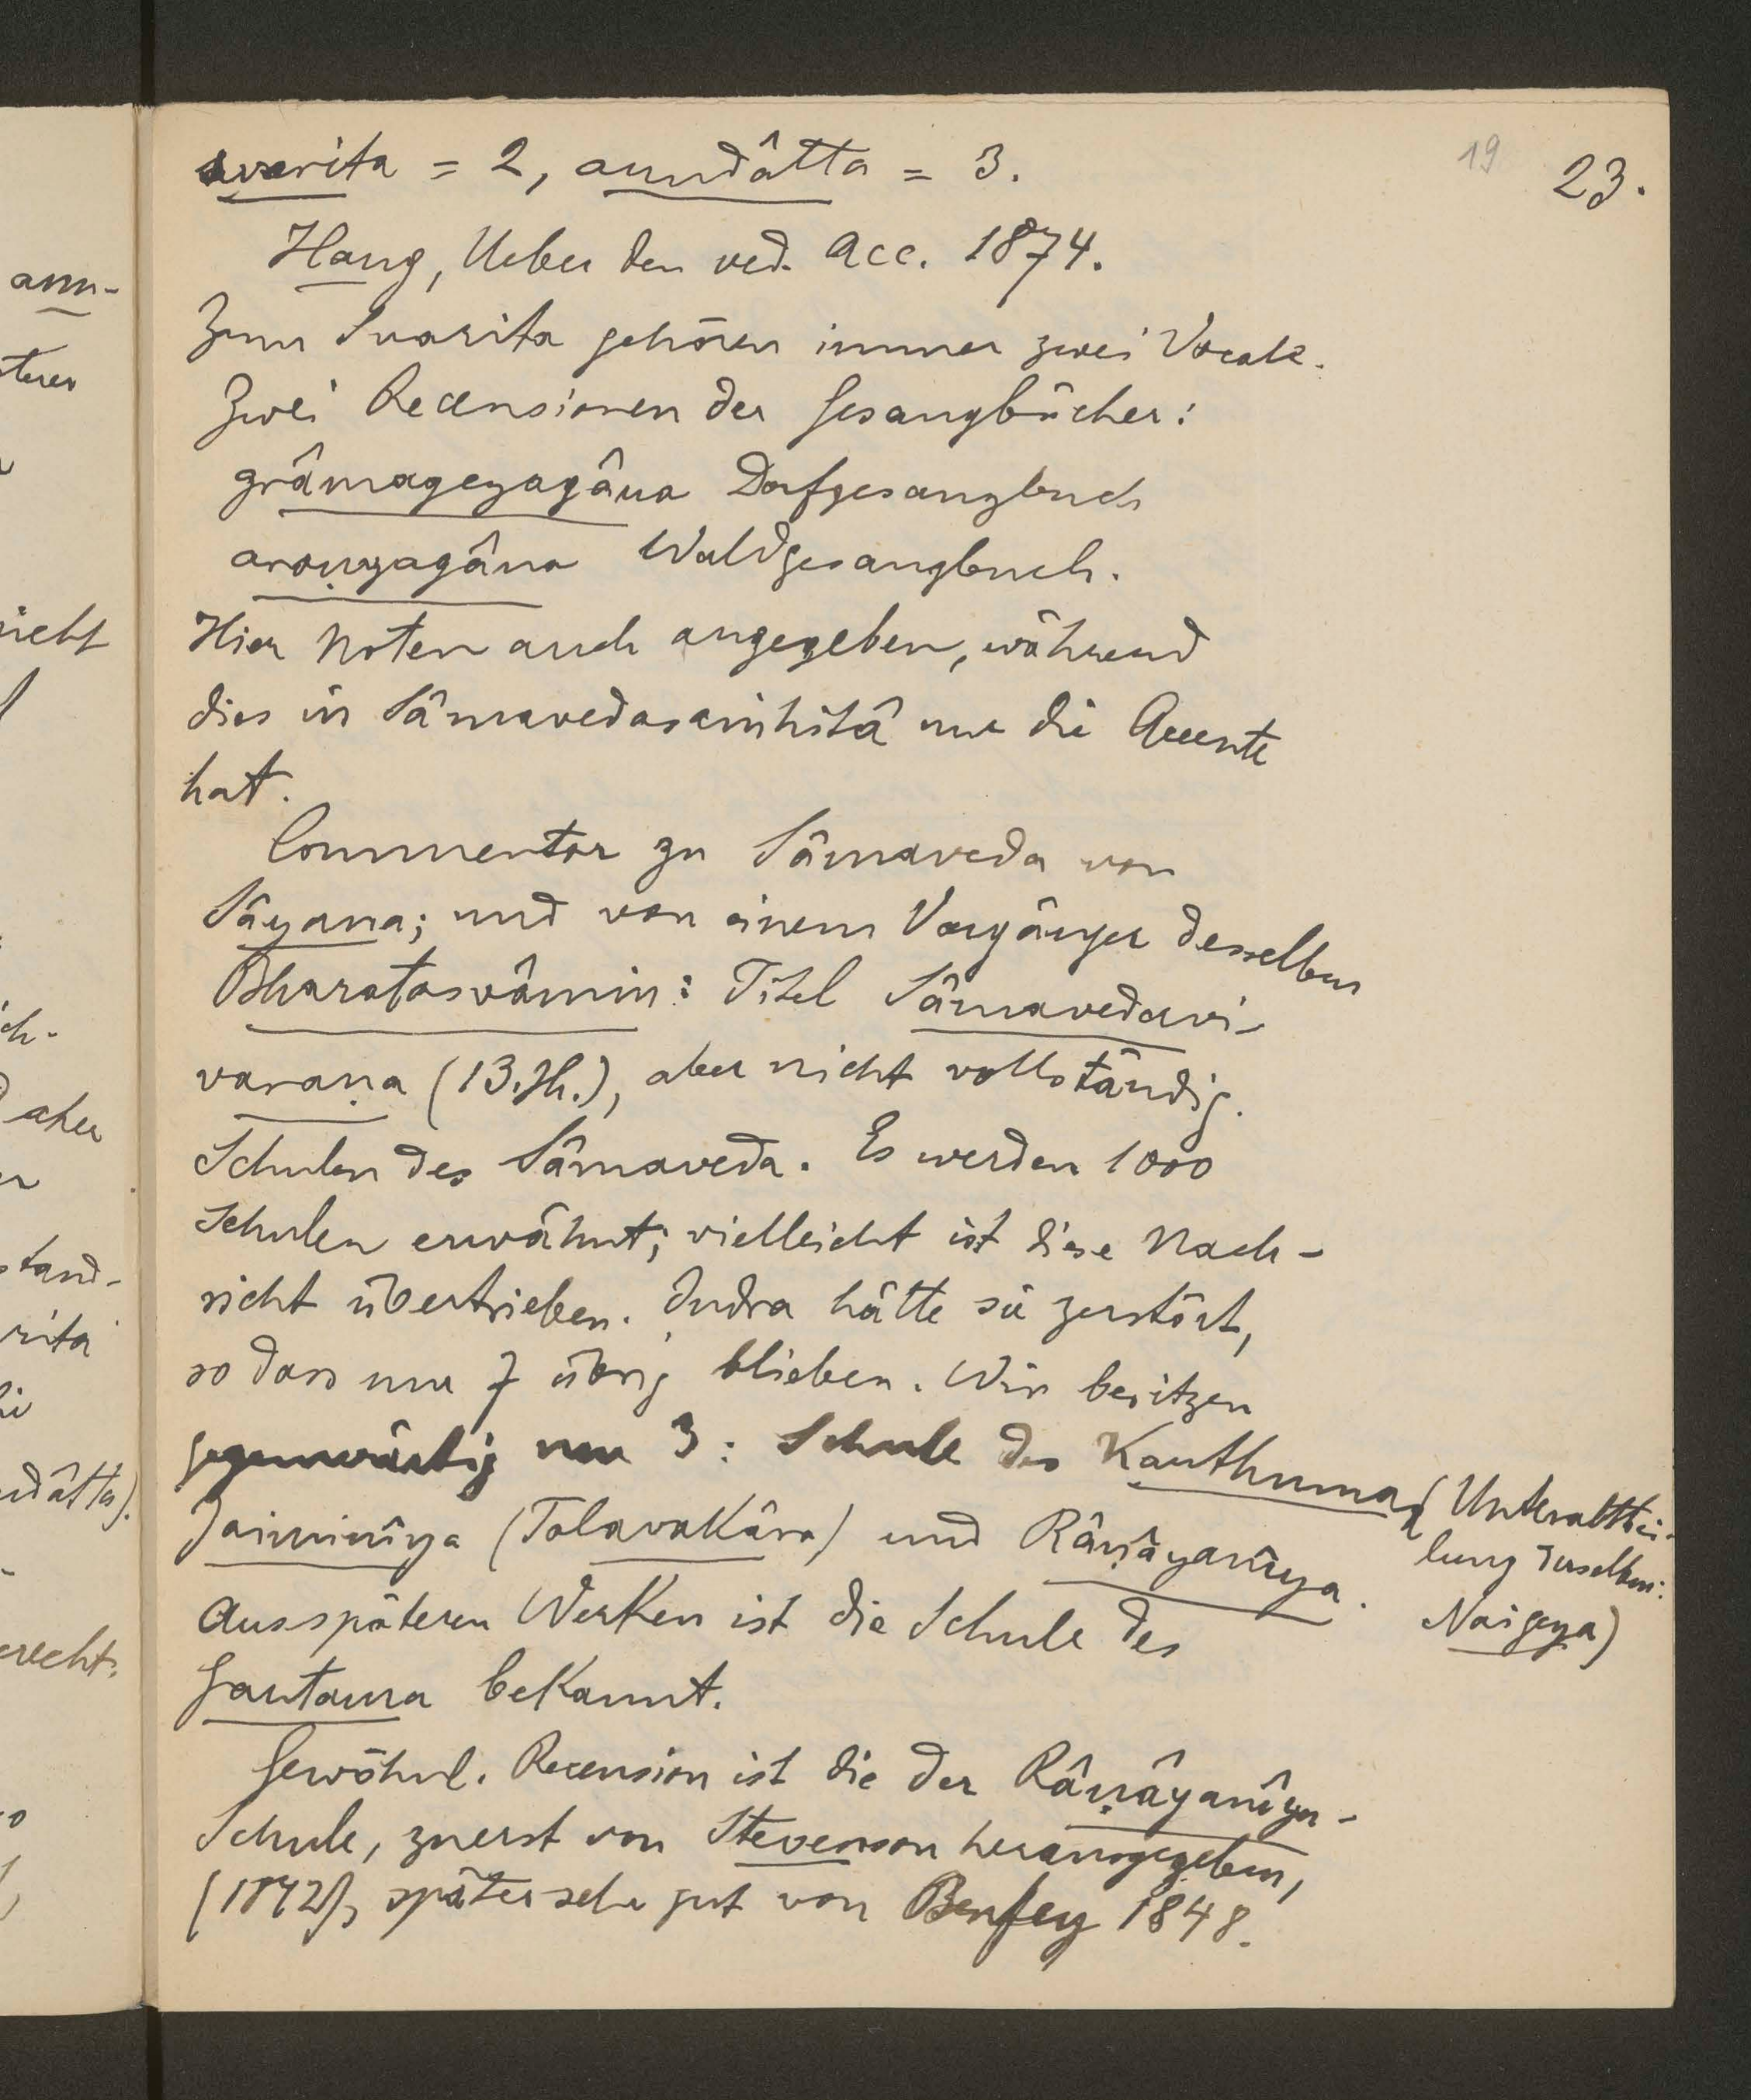 19 23.
svarita = 2, anudâtta = 3.
Haug, Ueber den ved. Acc. 1874.
Zum Svarita gehören immer zwei Vocale.
Zwei Recensionen der Gesangbücher:
grâmageyagâna Dorfgesangbuch
araṇyagâna Waldgesangbuch.
Hier Noten auch angegeben, während
dies in Sâmavedasaṁhitâ nur die Accente
hat.
Commentar zu Sâmaveda von
Sâyana; und von einem Vorgänger desselben
Bharatasvâmin: Titel Sâmavedavi-
varaṇa (13. Jh.), aber nicht vollständig.
Schulen des Sâmaveda. Es werden 1000
Schulen erwähnt; vielleicht ist diese Nach-
richt übertrieben. Indra hätte sie zerstört,
so dass nur 7 übrig blieben. Wir besitzen
gegenwärtig nur 3: Schule des Kauthuma, (Unterabthei-
lung derselben:
Naigeya)
Jaiminîya (Talavakâra) und Râṇâyanîya.
Aus späteren Werken ist die Schule des
Gautama bekannt.
Gewöhnl. Recension ist die der Râṇâyanîya-
Schule, zuerst von Stevenson herausgegeben,
(1842), später sehr gut von Benfey 1848.
anu-
steren
nicht
ich-
aher
stand-
rita
udâtta).
erecht.